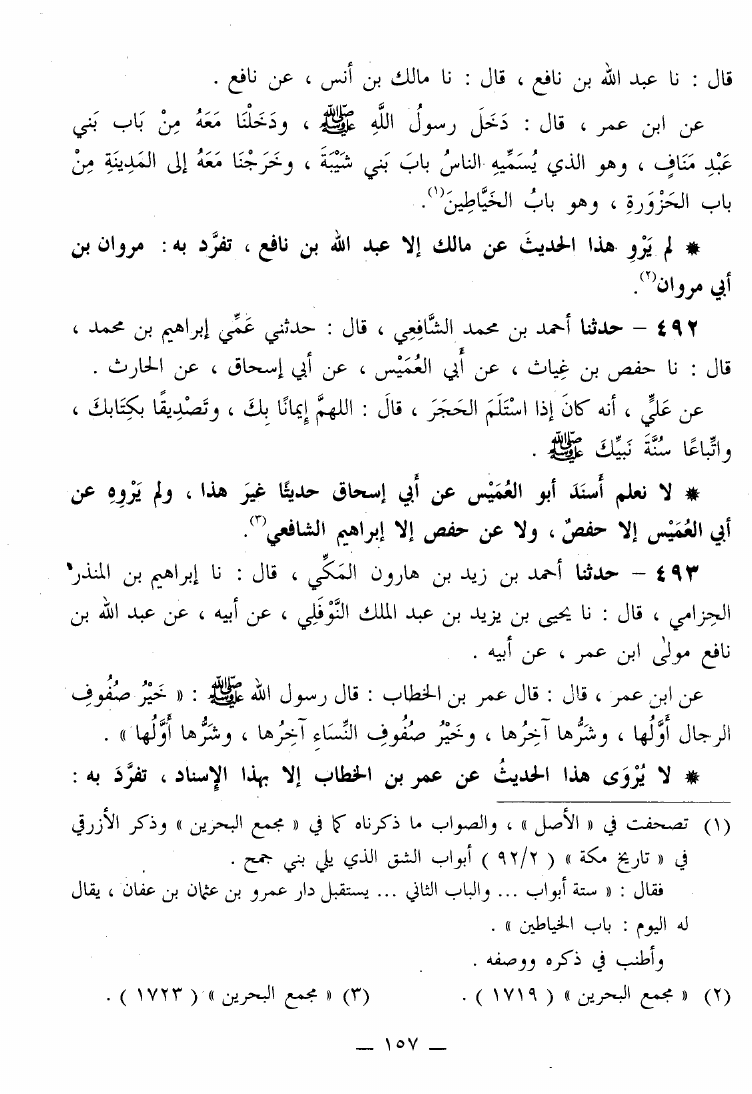 قال : نا عبد الله بن نافع ، قال : نا مالك بن أنس ، عن نافع .
عن ابن عمر ، قال : دَخَلَ رسولُ اللَّهِ ﷺ ، ودَخَلْنَا مَعَهُ مِنْ بَابِ بَني
عَبْدِ مَنَافٍ ، وهو الذي يُسَمِّيهِ الناسُ بابَ بَني شَيْبَةَ ، وخَرَجْنَا مَعَهُ إلى المَدِينَةِ مِنْ
باب الحَزْوَرةِ ، وهو بابُ الخَيَّاطِينَ(١).
* لم يَرْوِ هذا الحديثَ عن مالك إلا عبد الله بن نافع ، تفرَّد به : مروان بن
أبي مروان(٢).
٤٩٢ - حدثنا أحمد بن محمد الشَّافِعِي ، قال : حدثني عَمِّي إبراهيم بن محمد ،
قال : نا حفص بن غِياث ، عن أَبي العُمَيْس ، عن أبي إسحاق ، عن الحارث .
عن عَليٍّ ، أنه كانَ إذا اسْتَلَمَ الحَجَرَ ، قالَ : اللهمَّ إِيمَانًا بِكَ ، وتَصْدِيقًا بكِتَابكَ ،
واتِّباعًا سُنَّةَ نَبيِّكَ ﷺ .
* لا نعلم أَسنَدَ أبو العُمَيْس عن أَبي إسحاق حديثًا غيرَ هذا ، ولم يَرْوِهِ عن
أبي العُمَيْس إلا حفصٌ ، ولا عن حفص إلا إبراهيم الشافعي(٣).
٤٩٣ - حدثنا أحمد بن زيد بن هارون المَكِّي ، قال : نا إبراهيم بن المنذر
الحِزامي ، قال : نا يحيى بن يزيد بن عبد الملك النَّوْفَلِي ، عن أبيه ، عن عبد الله بن
نافع مولىٰ ابن عمر ، عن أبيه .
عن ابن عمر ، قال : قال عمر بن الخطاب : قال رسول الله ﷺ : « خَيْرُ صُفُوفِ
الرجال أَوَّلُها ، وشَرُّها آخِرُها ، وخَيْرُ صُفُوفِ النِّسَاءِ آخِرُها ، وشَرُّها أَوَّلُها » .
* لا يُرْوَى هذا الحديثُ عن عمر بن الخطاب إلا بهذا الإِسناد ، تفرَّدَ به :
(١) تصحفت في « الأصل » ، والصواب ما ذكرناه كما في « مجمع البحرين » وذكر الأزرقي
في « تاريخ مكة » ( ٩٢/٢ ) أبواب الشق الذي يلي بني جمح .
فقال : « ستة أبواب ... والباب الثاني ... يستقبل دار عمرو بن عثمان بن عفان ، يقال
له اليوم : باب الخياطين » .
وأطنب في ذكره ووصفه .
(٢) « مجمع البحرين » ( ١٧١٩ ) . (٣) « مجمع البحرين » ( ١٧٢٣ ) .
— ١٥٧ —